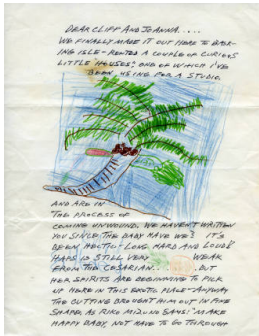 DEAR CLIFF AND JOANNA.....
WE FINALLY MADE IT OUT HERE TO BASK-
ING ISLE - RENTED A COUPLE OF CURIOUS
LITTLE "HOUSES", ONE OF WHICH I'VE
BEEN USING FOR A STUDIO
AND ARE IN
THE PROCESS OF
COMING UNWOUND. WE HAVEN'T WRITTEN
YOU SINCE THE BABY HAVE WE? IT'S
BEEN HECTIC - LONG HARD AND LOUD!
IS STILL VERY WEAK
FROM THE CESARIAN..... BUT
HER SPIRITS ARE BEGINNING TO PICK
UP HERE IN THIS EXOTIC PLACE - ANYWAY
THE CUTTING BROUGHT HIM OUT IN FINE
SHAPE. AS RIKE SAYS: "MAKE
HAPPY BABY, NOT HAVE TO GO THROUGH